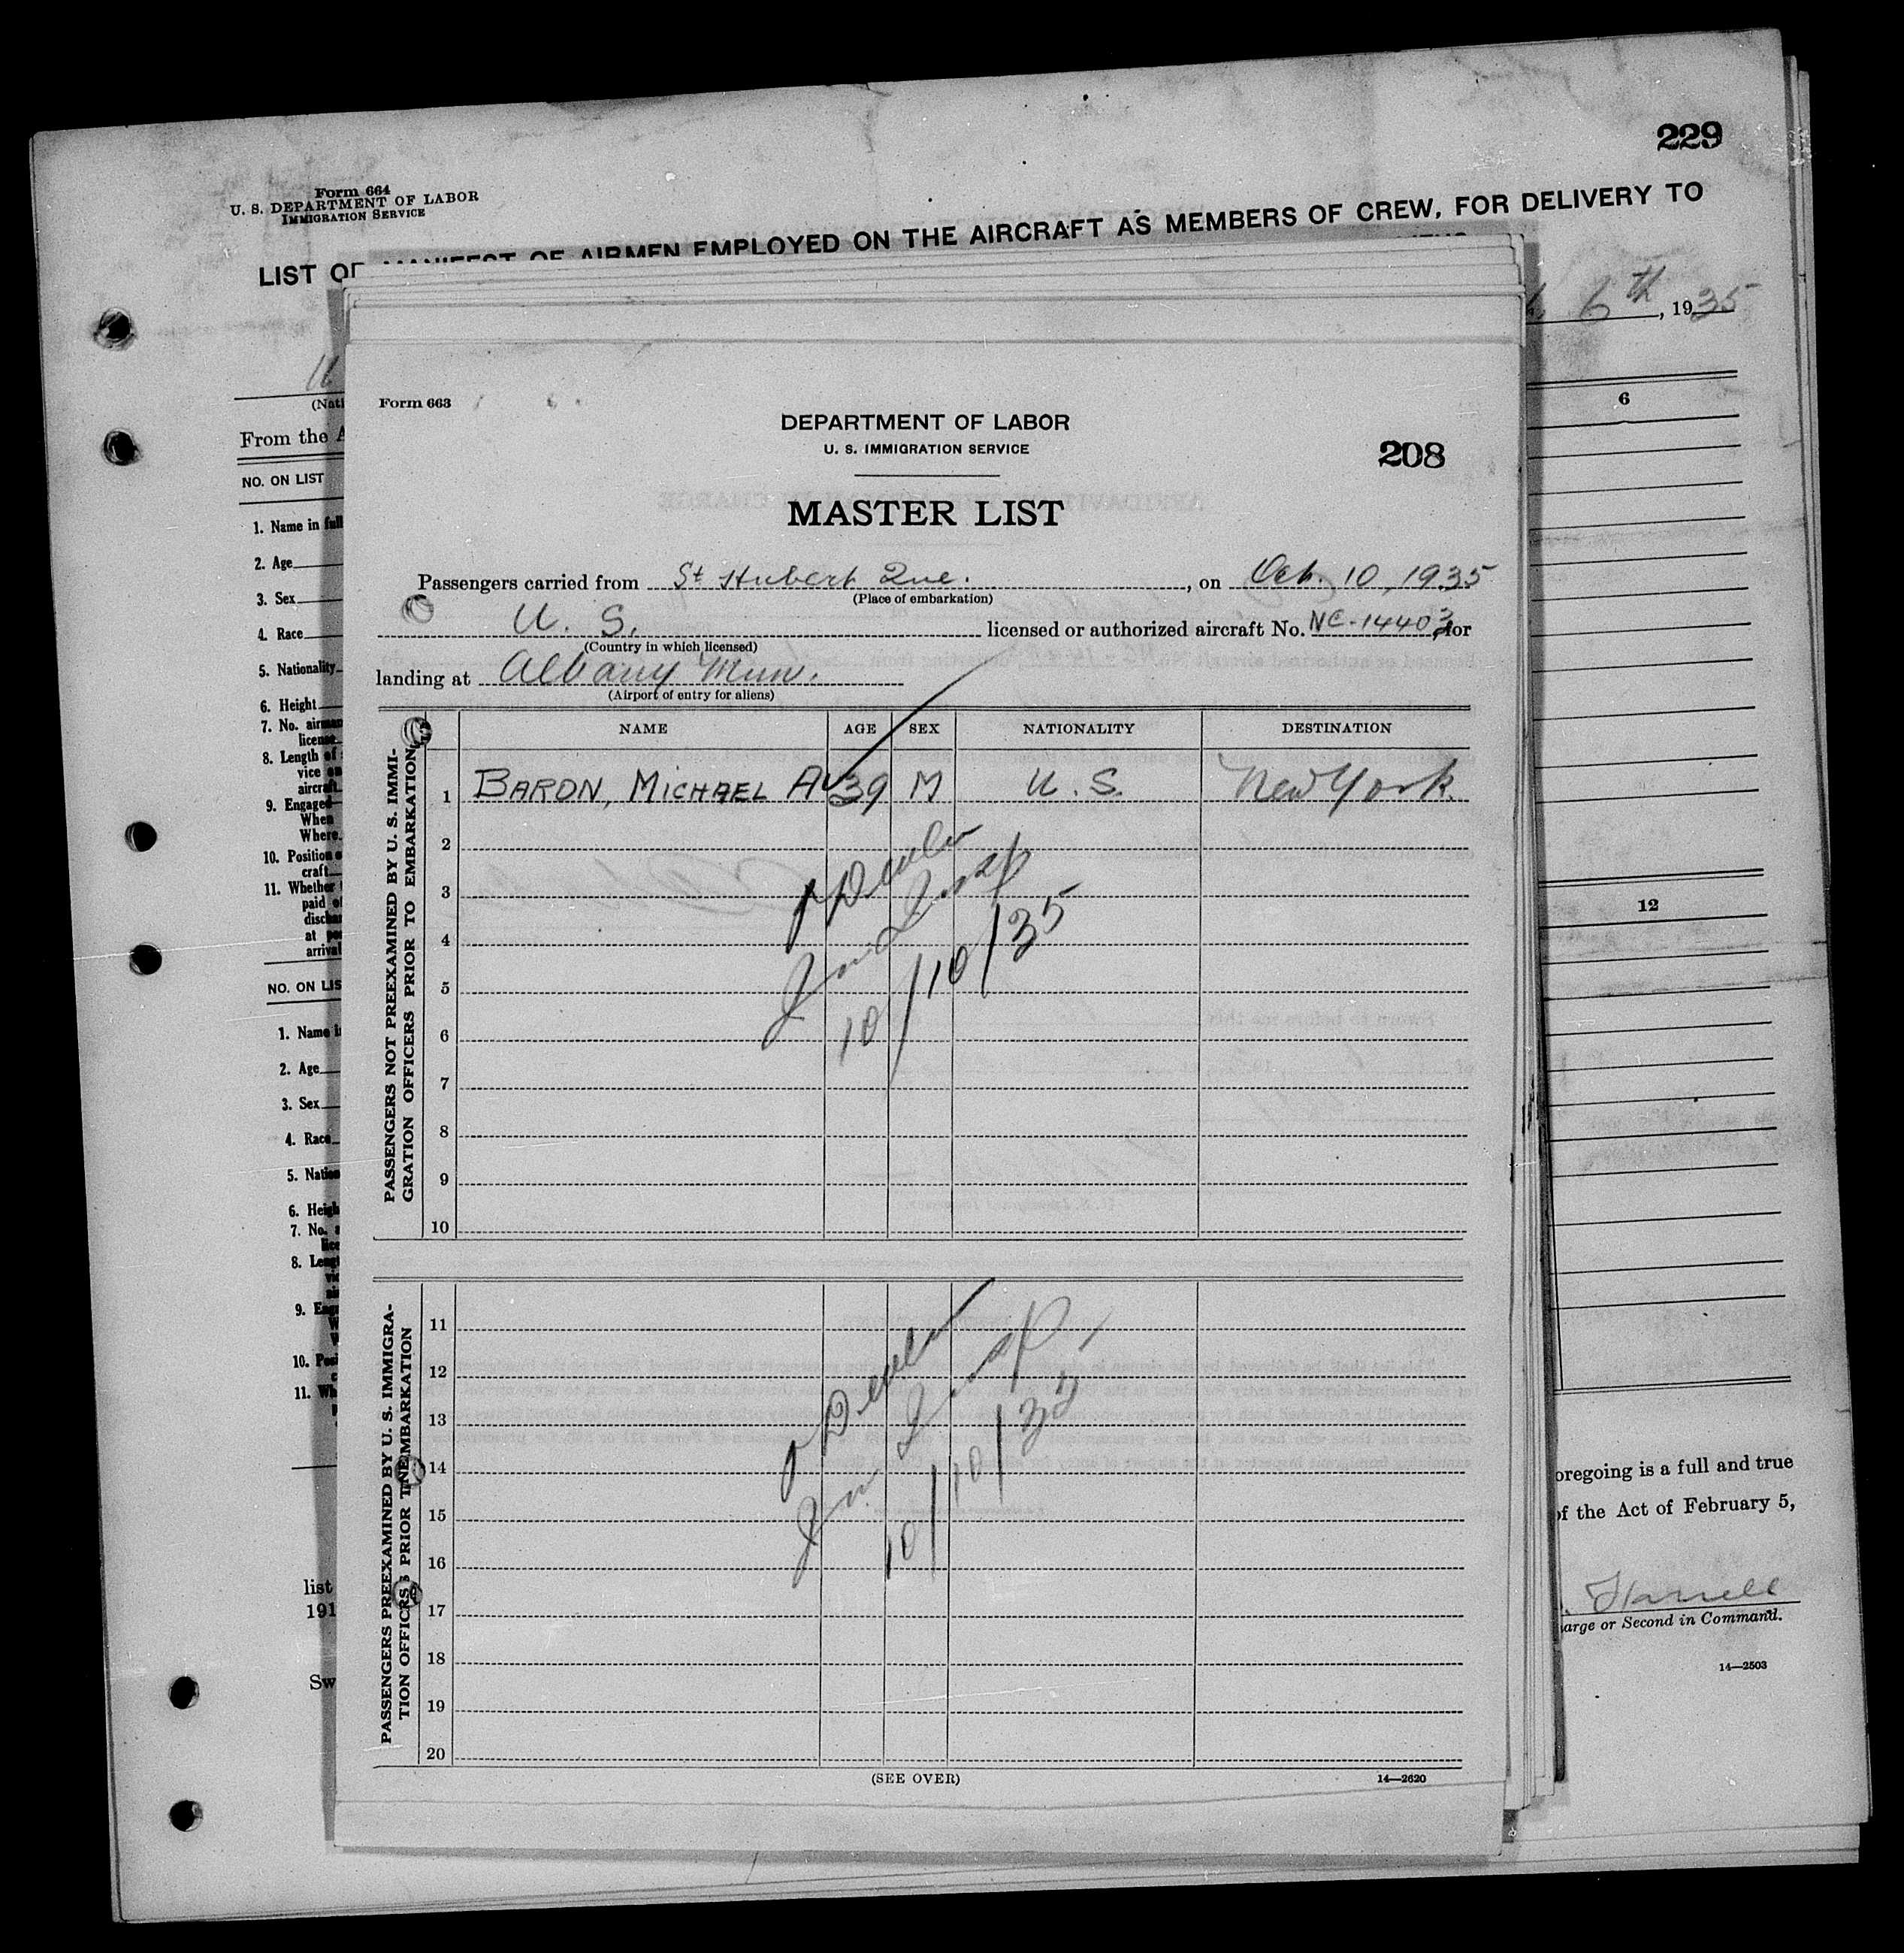 229
Form 664
U. S. DEPARTMENT OF LABOR
IMMIGRATION SERVICE
LIST OR MANIFEST OF AIRMEN EMPLOYED ON THE AIRCRAFT AS MEMBERS OF CREW, FOR DELIVERY TO
6th, 1935
(Nati
From the A
NO. ON LIST
6
1. Name in full
2. Age
3. Sex
4. Race
5. Nationality
6. Height
7. No. airman
license
8. Length of
vice on
aircraft
9. Engaged
When
Where
10. Position
craft
11. Whether
paid of
discha
at po
arrival
NO. ON LIS
12
1. Name i
2. Age
3. Sex
4. Race
5. Nation
6. Heigh
7. No. a
lice
8. Lengt
9. Eng
10. Posi
11. Wh
list
191
Sw
oregoing is a full and true
of the Act of February 5,
arge or Second in Command.
14—2503
Form 663
DEPARTMENT OF LABOR
U. S. IMMIGRATION SERVICE
208
MASTER LIST
Passengers carried from St Hubert Que., on Oct. 10, 1935
(Place of embarkation)
U. S. licensed or authorized aircraft No. NC-14403 for
(Country in which licensed)
landing at Albany Mun.
(Airport of entry for aliens)
NAME AGE SEX NATIONALITY DESTINATION
PASSENGERS NOT PREEXAMINED BY U. S. IMMI-
GRATION OFFICERS PRIOR TO EMBARKATION
1 BARON, MICHAEL A 39 M U. S. New York
2
3
4
5
6
7
8
9
10
Imm Insp
10/10/35
PASSENGERS PREEXAMINED BY U. S. IMMIGRA-
TION OFFICRS PRIOR TO EMBARKATION
11
12
13
14
15
16
17
18
19
20
Imm Insp
10/10/35
(SEE OVER)
14—2620